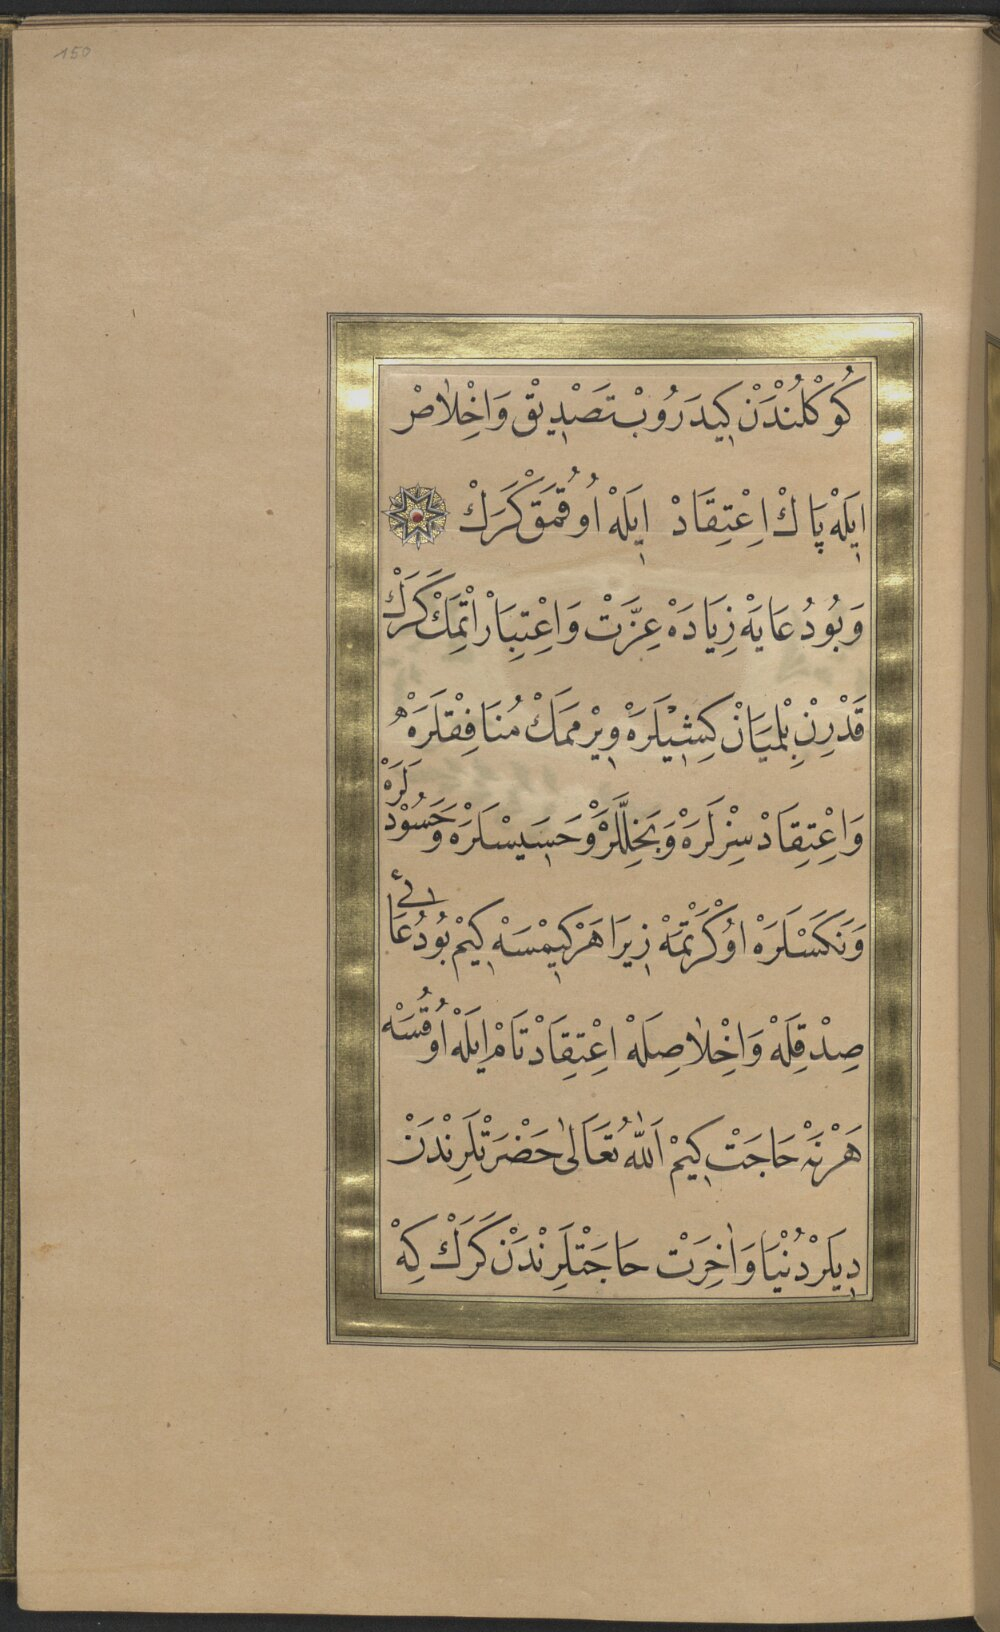 150
كُوكْلُنْدَنْ كِيدَرُوبْ تَصْدِيقْ وَاِخْلَاصْ
اِيلَهْ پَاكْ اِعْتِقَادْ اِيلَهْ اُوقُمَقْ كَرَكْ
وَبُودُعَايَهْ زِيَادَهْ عِزَّتْ وَاِعْتِبَارْ اتْمَكْ كَرَكْ
قَدْرِنْ بِلْمِيَانْ كِشِيْلَرَهْ وِيرْمَمَكْ مُنَافِقْلَرَهْ
وَاِعْتِقَادْ سِزْلَرَهْ وَبَخِلَّلَرْهْ وَحَسِيسْلَرَهْ وَحَسُودْلَرَهْ
وَنَكَسْلَرَهْ اوُكْرَتْمَهْ زِيرَا هَرْكِيمْسَهْ كِيمْ بُودُعَائِ
صِدْقِلَهْ وَاِخْلَاصِلَهْ اِعْتِقَادْ تَامْ اِيلَهْ اُوقُسَهْ
هَرْنَهْ حَاجَتْ كِيمْ اَللّٰهُ تَعَالٰى حَضْرَتْلَرِنْدَنْ
دِيلَرْ دُنْيَا وَاٰخِرَتْ حَاجَتْلَرِنْدَنْ كَرَكْ كِهْ